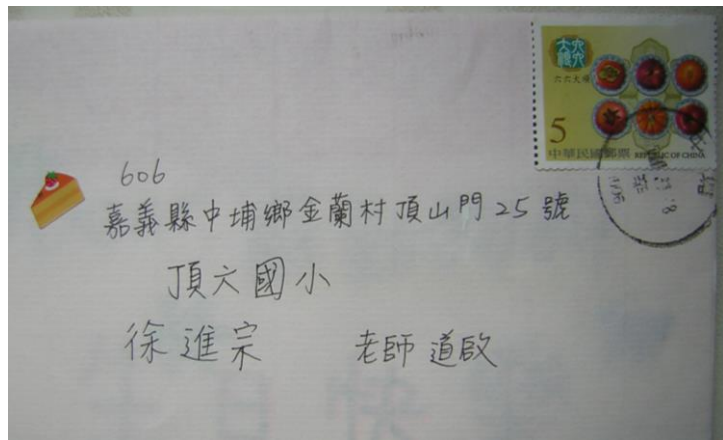 大六
禮六
六六大順
5
中華民國郵票 REPUBLIC OF CHINA
606
嘉義縣中埔鄉金蘭村頂山門25號
頂六國小
徐進宗 老師 道啟